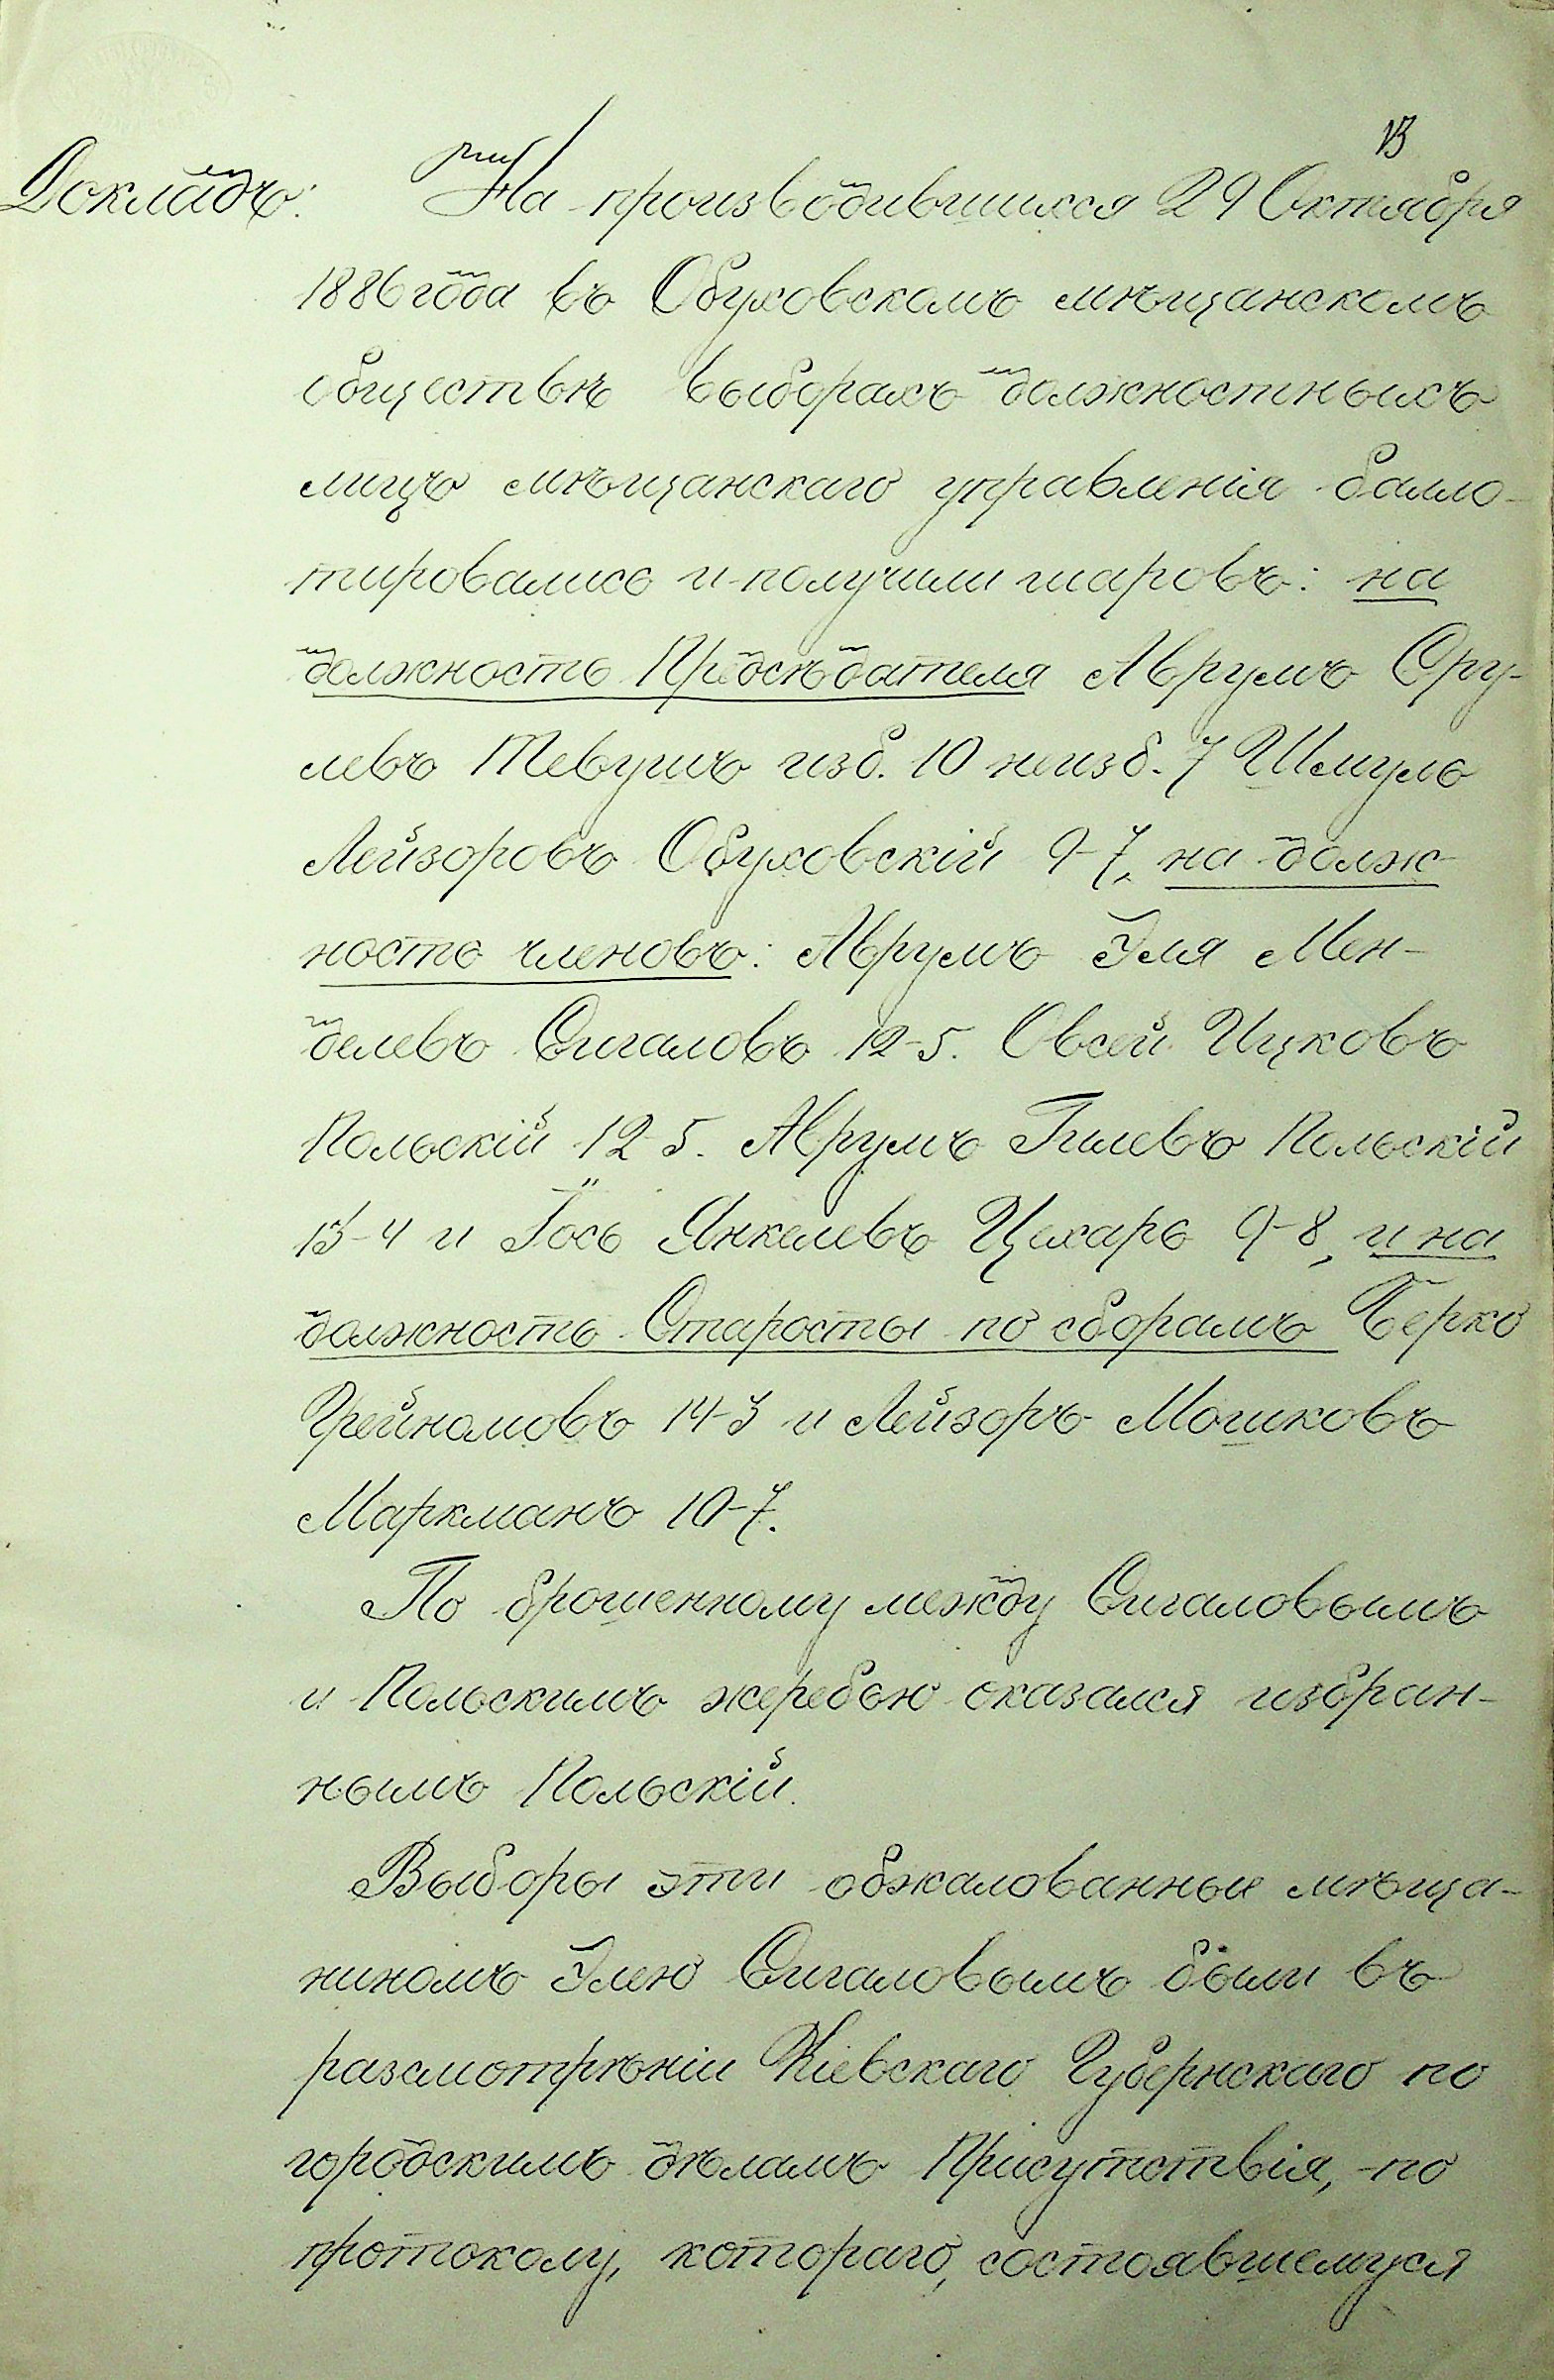 13
Докладъ. На производившихся 29 Октября
1886 года въ Обуховскомъ мѣщанскомъ
обществѣ выборахъ должностныхъ
лицъ мѣщанскаго управленія балло-
тировались и получили шаровъ: на
должность Предсѣдателя Аврумъ Сру-
левъ Тевушъ изб. 10 неизб. 7 Шмуль
Лейзоровъ Обуховскій 9-7, на долж-
ность членовъ: Аврумъ Эля Мен-
делевъ Сигаловъ 12-5. Овсей Ицковъ
Польскій 12-5. Аврумъ Гилевъ Польскій
13-4 и Іось Янкелевъ Цехаръ 9-8, и на
должность Старосты по сборамъ Берко
Грейномовъ 14-3 и Лейзоръ Мошковъ
Маркманъ 10-7.
По брошенному между Сигаловымъ
и Польскимъ жеребью оказался избран-
нымъ Польскій.
Выборы эти обжалованные мѣща-
ниномъ Элею Сигаловымъ были въ
разсмотрѣніи Кіевскаго Губернскаго по
городскимъ дѣламъ Присутствія, по
протоколу, котораго, состоявшемуся